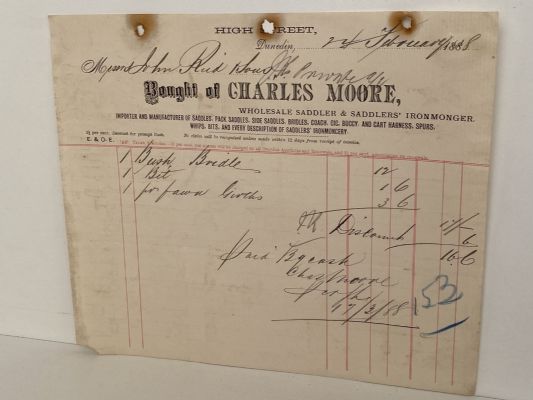 HIGH STREET,
Dunedin, 24 February 1888
Messrs John Reid & Sons Private a/c
Bought of CHARLES MOORE,
WHOLESALE SADDLER & SADDLERS' IRONMONGER.
IMPORTER AND MANUFACTURER OF SADDLES, PACK SADDLES, SIDE SADDLES, BRIDLES, COACH, GIG, BUGGY, AND CART HARNESS, SPURS,
WHIPS, BITS, AND EVERY DESCRIPTION OF SADDLERS' IRONMONGERY.
2½ per cent. discount for prompt Cash. No claim will be recognised unless made within 12 days from receipt of invoice.
E. & O. E.
1 Bush Bridle 12
1 Bit 1 6
1 pr fawn Girths 3 6
17/-
Discount 6
16 6
Paid By cash
Chas Moore
17/3/88
153